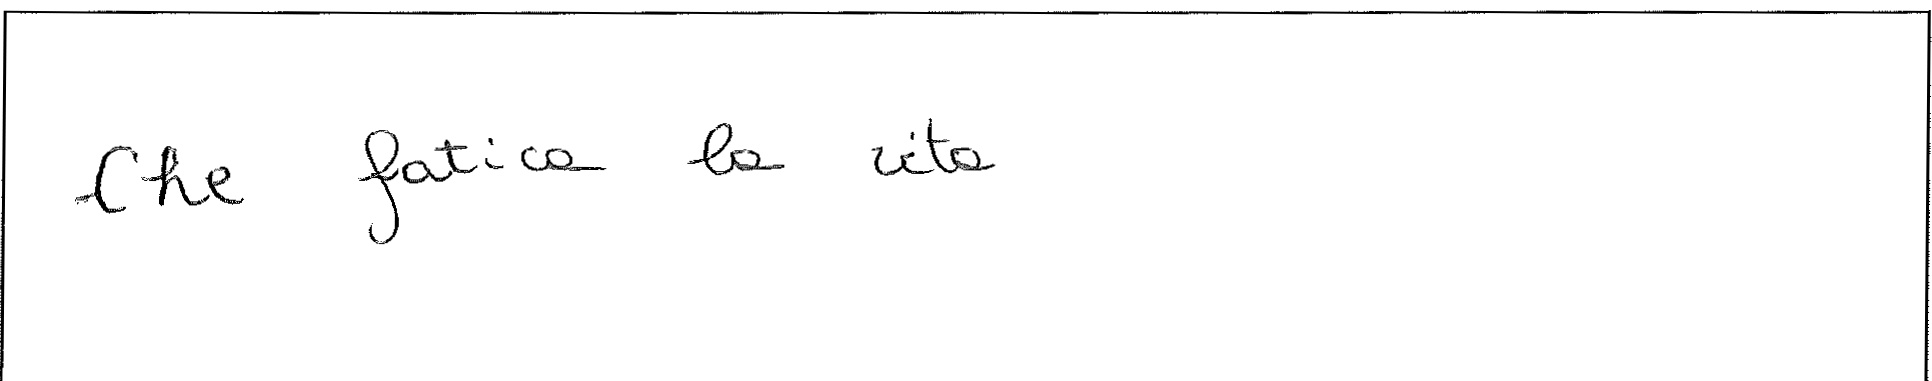 Che fatica la vita